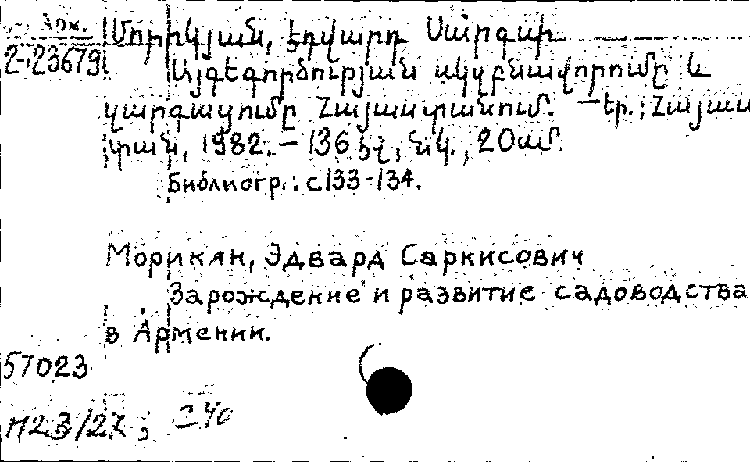 Арм.
2-23679
Մորիկյան, Էդվարդ Սարգսի
Այգեգործության սկզբնավորումը և
զարգացումը Հայաստանում. — Եր.; Հայաս
տան, 1982. — 136 էջ, նկ., 20սմ.
Библиогр.: с.133-134.
Морикян, Эдвард Саркисович
Зарождение и развитие садоводства
в Армении.
57023
П23/27; С40